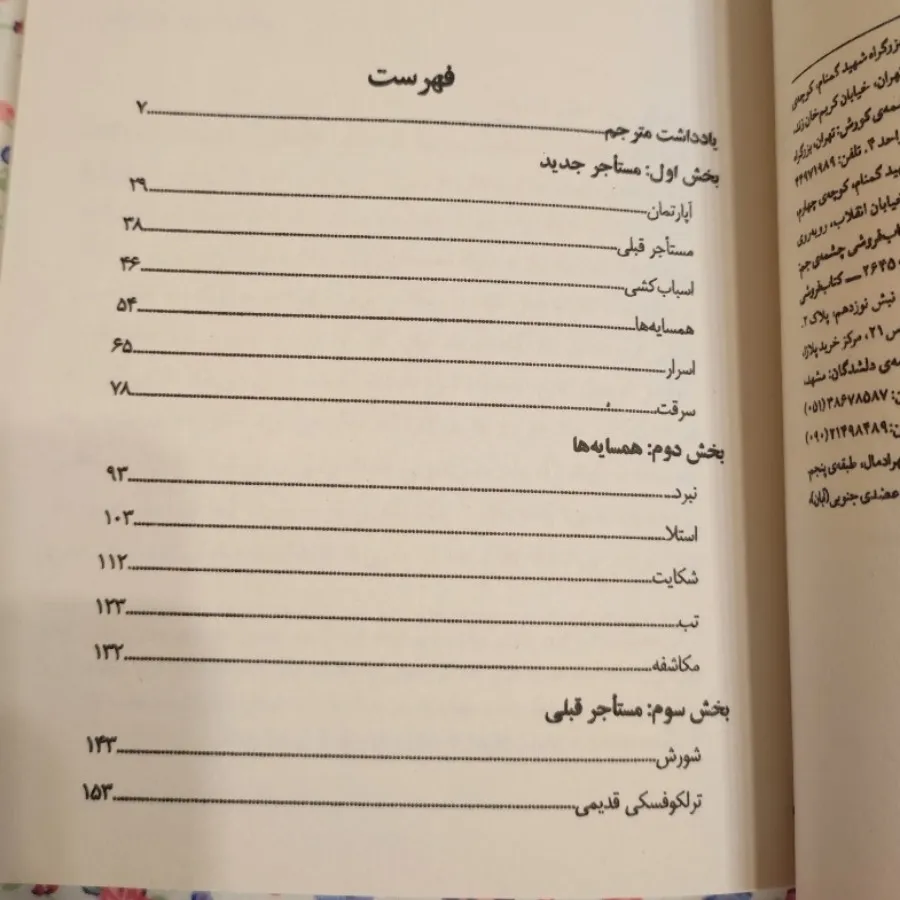 فهرست
یادداشت مترجم......۷
بخش اول: مستأجر جدید
آپارتمان......۲۹
مستأجر قبلی......۳۸
اسباب‌کشی......۴۶
همسایه‌ها......۵۴
اسرار......۶۵
سرقت......۷۸
بخش دوم: همسایه‌ها
نبرد......۹۳
استلا......۱۰۳
شکایت......۱۱۲
تب......۱۲۳
مکاشفه......۱۳۲
بخش سوم: مستأجر قبلی
شورش......۱۴۳
ترلکوفسکی قدیمی......۱۵۳
بزرگراه شهید گمنام، کوچه‌ی
تهران، خیابان کریم‌خان زند،
کورش: تهران، بزرگراه
واحد ۴. تلفن: ۴۴۹۷۱۹۸۹
گمنام، کوچه‌ی چهارم،
خیابان انقلاب، روبه‌روی
کتاب‌فروشی چشمه‌ی جم:
۲۶۴۵ — کتاب‌فروشی
نبش نوزدهم، پلاک ۲.
۲۱، مرکز خرید پلازا،
دلشدگان: مشهد،
۳۸۶۷۸۵۸۷ (۰۵۱)
۲۱۴۹۸۴۸۹ (۰۹۰)
مهرادمال، طبقه‌ی پنجم،
عضدی جنوبی (آبان)،